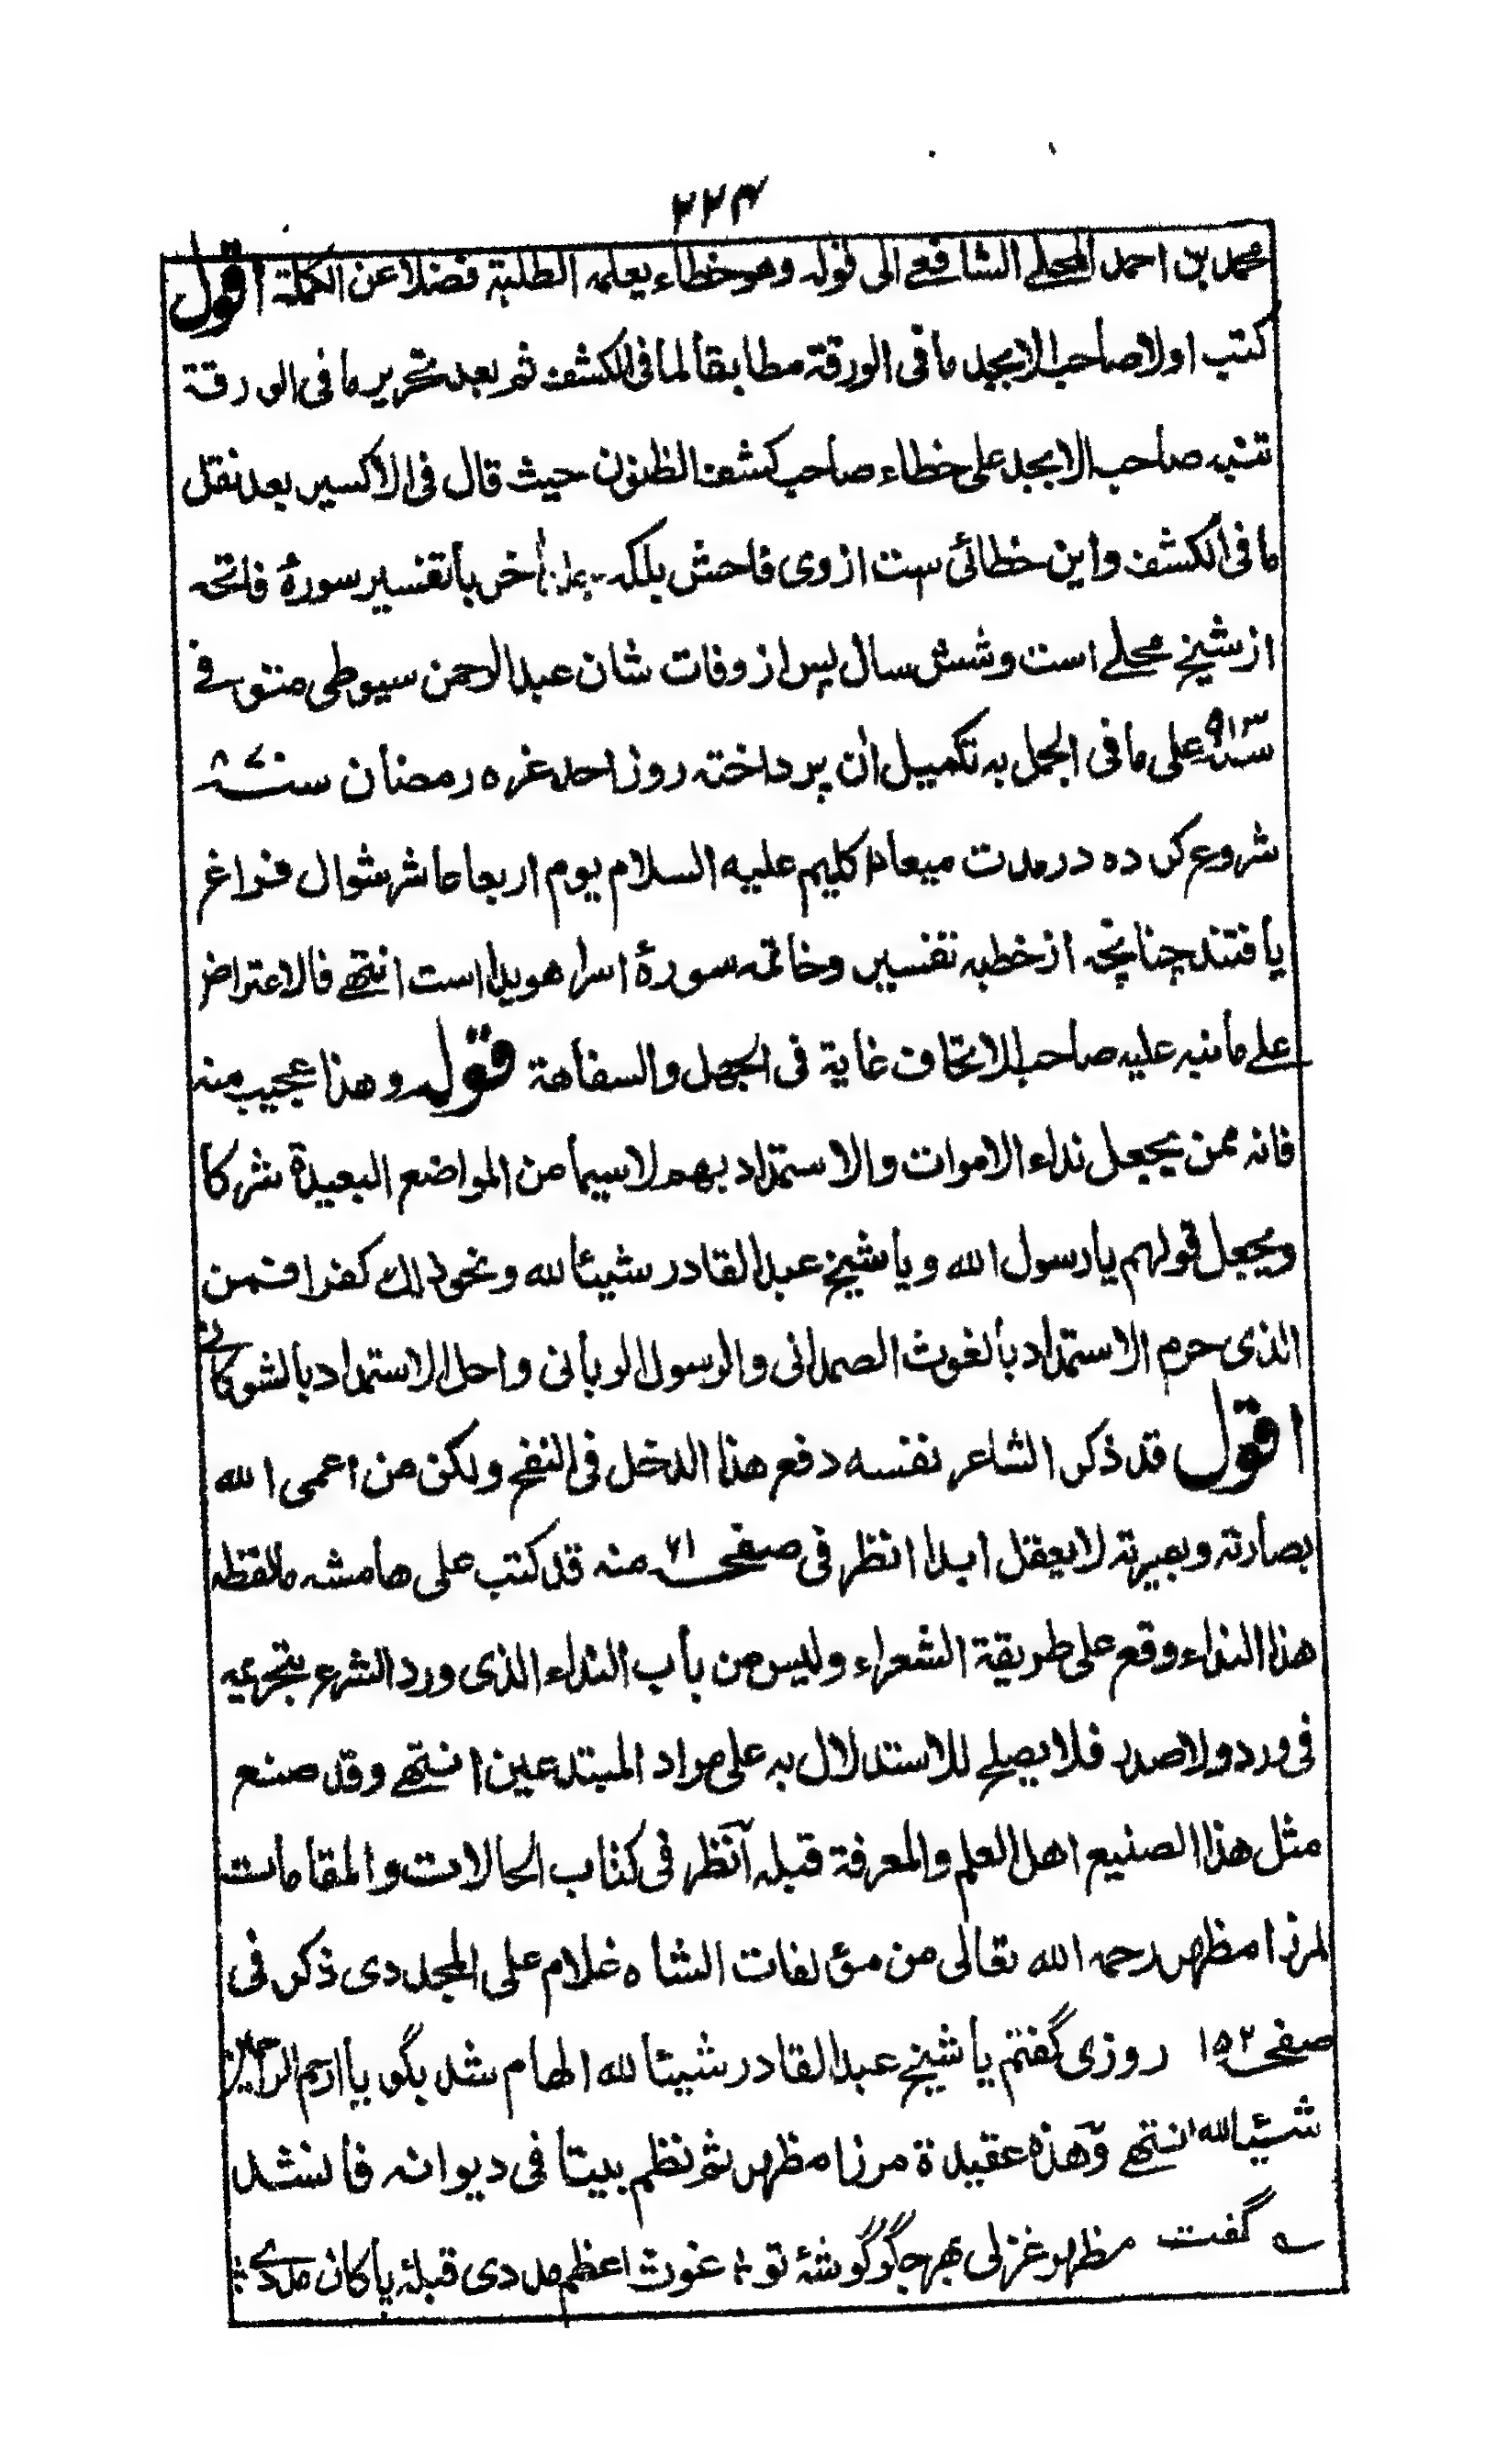 ۲۲۴
محمد بن احمد المحلے الشافعے الی قوله وهو خطاء يعلمه الطلبة فضلا عن الكملة اقول
كتب اولا صاحب الابجد ما فی الورقة مطابقا لما فی الكشف ثم بعد تحرير ما فی الورقة
تنبه صاحب الابجد علی خطاء صاحب كشف الظنون حيث قال فی الاكسير بعد نقل
ما فی الكشف واين خطائی ست ازوی فاحش بلكه اٰخر با تفسير سورهٔ فاتحه
از شيخ محلے است وشش سال پس از وفات شان عبد الرحمن سيوطی متوفے
سنه ۹۱۳ علی ما فی الجمل به تكميل اٰن پرداخته روز احد غره رمضان سنه ۸۷۰
شروع كرده در مدت ميعاد كليم عليه السلام يوم اربعا عاشر شوال فراغ
يافتند چنانچه از خطبه تفسير وخاتمه سورهٔ اسرا هويدا است انتهے فالاعتراض
علے ما نبه عليه صاحب الاتحاف غاية فی الجهل والسفاهة قوله وهذا عجيب منه
فانه ممن يجعل نداء الاموات والاستمداد بهم لا سيما من المواضع البعيدة شركا
ويجعل قولهم يا رسول الله ويا شيخ عبد القادر شيئا لله ونحو ذلك كفرا فمن
الذی حرم الاستمداد بالغوث الصمدانی والرسول الربانی واحل الاستمداد بالشوكانے
اقول قد ذكر الشاعر نفسه دفع هذا الدخل فی النفح ولكن من اعمی الله
بصارته وبصيرته لا يعقل ابدا انظر فی صفحه ۶۱ منه قد كتب علی هامشه ما لفظه
هذا النداء وقع علی طريقة الشعراء وليس من باب النداء الذی ورد الشرع بتحريمه
فی ورد ولا صدر فلا يصلح للاستدلال به علی مراد المبتدعين انتهے وقد صنع
مثل هذا الصنيع اهل العلم والمعرفة قبله اٰنظر فی كتاب الحالات والمقامات
لمرزا مظهر رحمه الله تعالی من مؤلفات الشاه غلام علی المجددی ذكر فی
صفحه ۱۵۲ روزی گفتم يا شيخ عبد القادر شيئا لله الهام شد بگو يا ارحم الراحمين
شيئا لله انتهے وهذه عقيدة مرزا مظهر ثم نظم بيتا فی ديوانه فانشد
؎ گفت مظهر غزلی بهر جگر گوشهٔ تو ؛ غوث اعظم مددی قبلهٔ پاكان مددے ؛